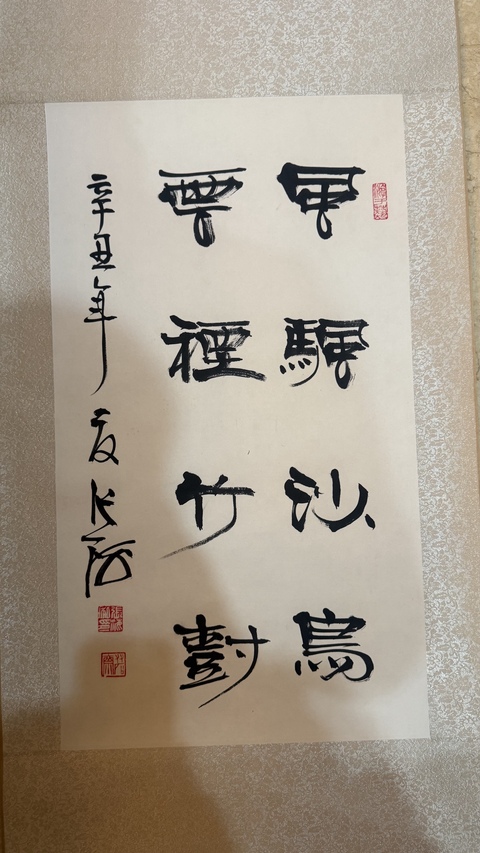 風颿沙鳥
雲煙竹尌
辛丑年夏